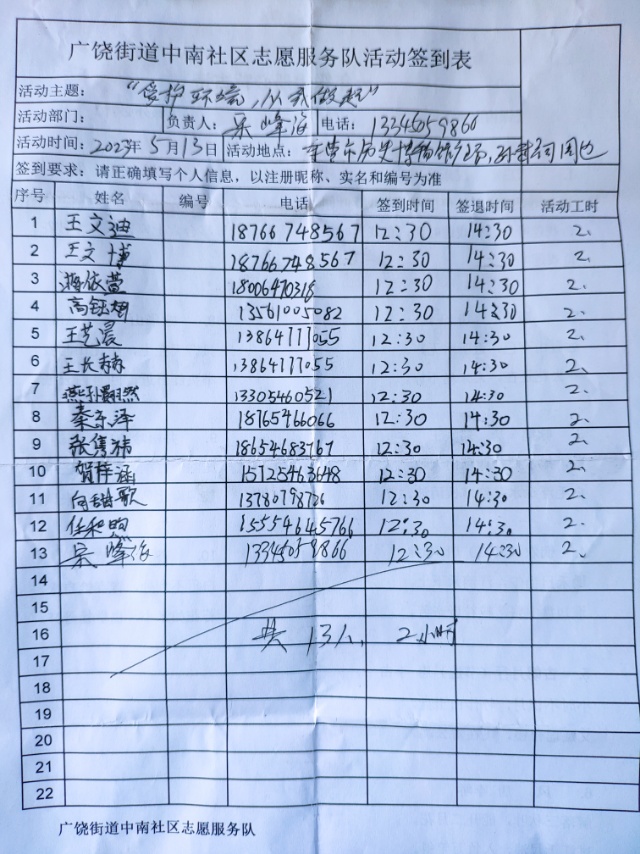 广饶街道中南社区志愿服务队活动签到表
活动主题： “爱护环境，从我做起”
活动部门： 负责人：宋峰海 电话：13345059866
活动时间：2023年5月13日 活动地点：东营市历史博物馆广场，孙武祠周边
签到要求：请正确填写个人信息，以注册昵称、实名和编号为准
序号 姓名 编号 电话 签到时间 签退时间 活动工时
1 王文迪 18766748567 12:30 14:30 2、
2 王文博 18766748567 12:30 14:30 2、
3 蒋依萱 18006470318 12:30 14:30 2、
4 高钰炯 13561005082 12:30 14:30 2、
5 王艺晨 13864777055 12:30 14:30 2、
6 王长赫 13864777055 12:30 14:30 2、
7 燕孙翻然 13305460521 12:30 14:30 2、
8 秦东泽 18765466066 12:30 14:30 2、
9 张隽祎 18654683767 12:30 14:30 2、
10 贺梓涵 15725463648 12:30 14:30 2、
11 向甜歌 13780798726 12:30 14:30 2、
12 任和煦 15554645766 12:30 14:30 2、
13 宋峰海 13345059866 12:30 14:30 2、
14
15
16 共13人，2小时
17
18
19
20
21
22
广饶街道中南社区志愿服务队